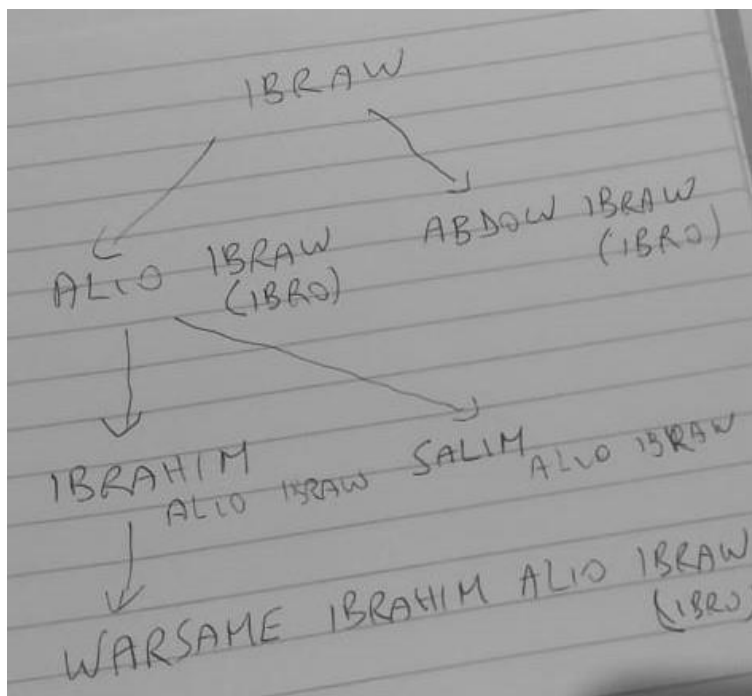 IBRAW
ALIO IBRAW ABDOW IBRAW
(IBRO) (IBRO)
IBRAHIM ALIO IBRAW SALIM ALIO IBRAW
WARSAME IBRAHIM ALIO IBRAW
(IBRO)